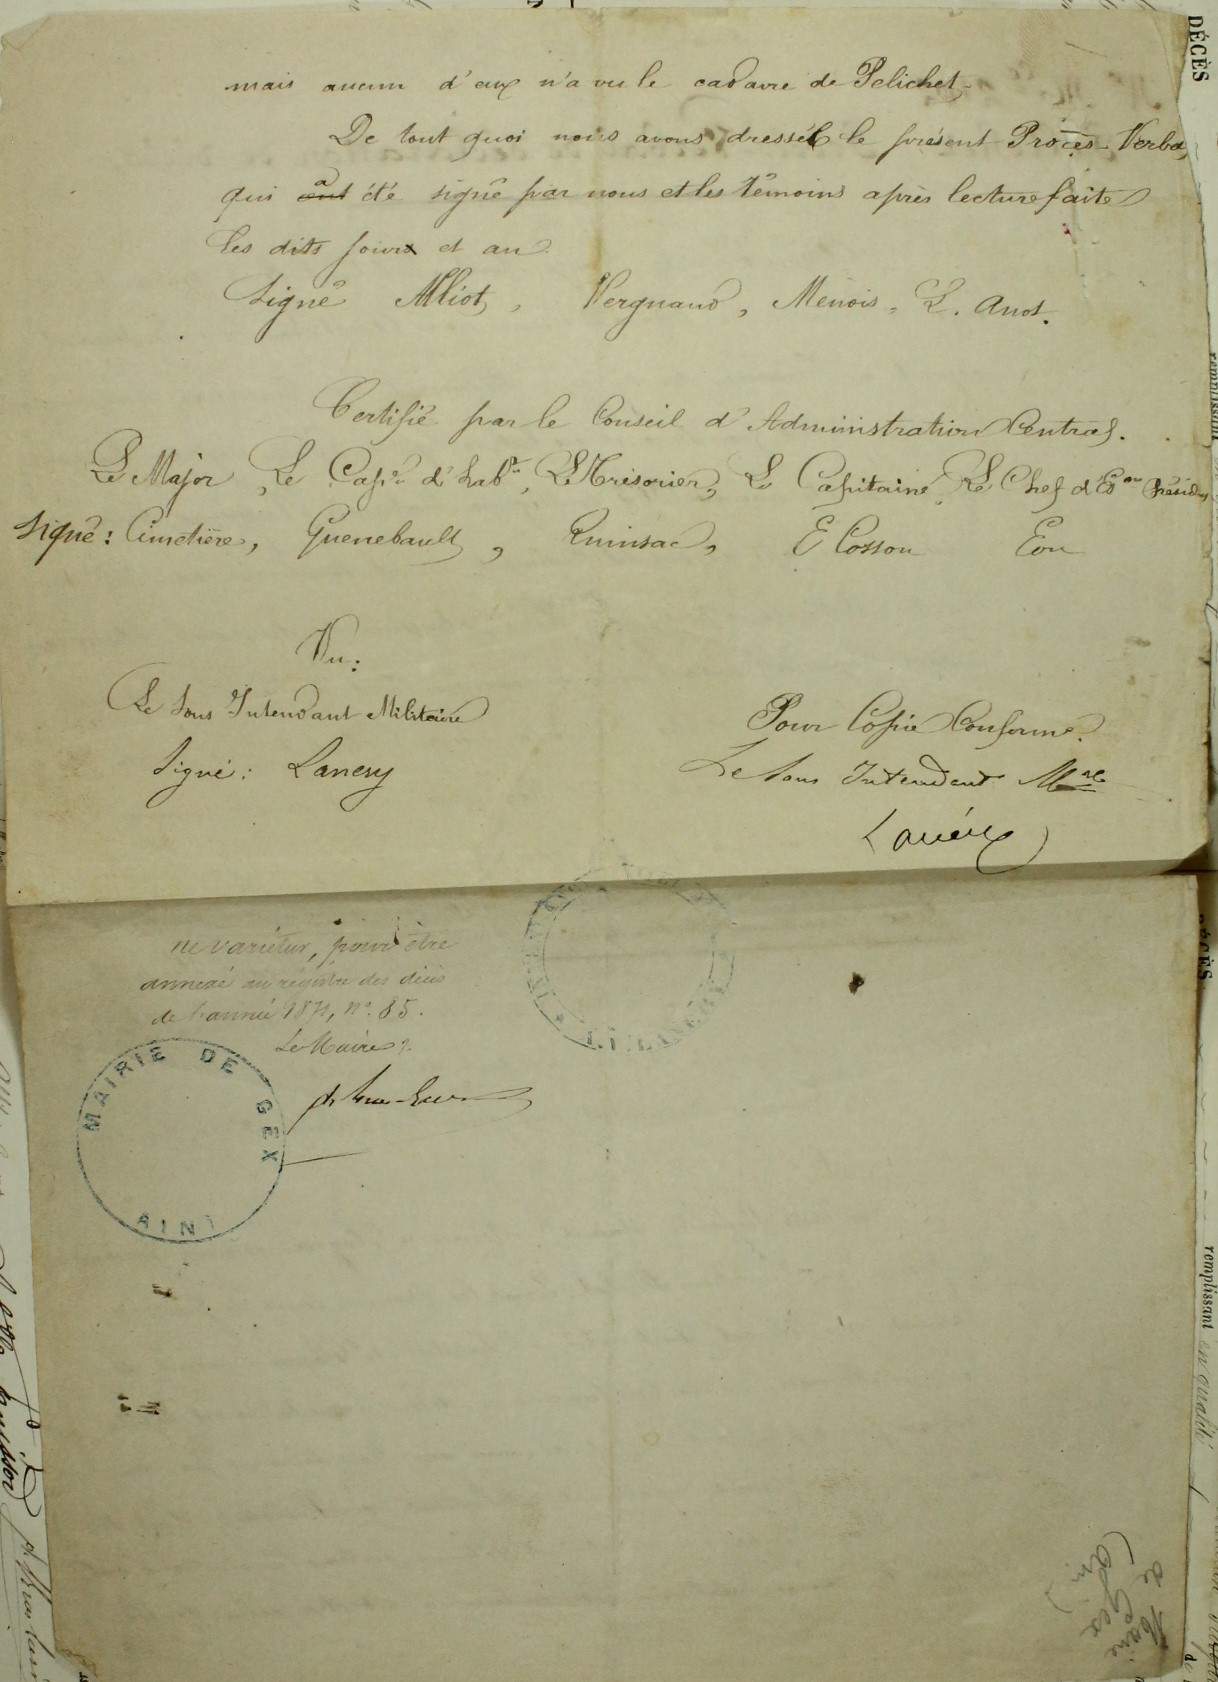 mais aucun d'eux n'a vu le cadavre de Pelichet.
De tout quoi nous avons dressé le présent Procès-Verbal,
qui a été signé par nous et les témoins après lecture faite
les dits jour et an.
Signé Alliot, Vergnaud, Menois, L. Anot.
Certifié par le Conseil d'Administration Central.
Le Major, Le Capne d'habt, Le Trésorier, Le Capitaine, Le Chef d'Eon Présidt
Signé: Cimetière, Guenebault, Quinsac, E Cosson Eon
Vu:
Le Sous Intendant Militaire
Signé: Lanery
Pour Copie Conforme.
Le Sous Intendant Mre
Lanery
ne varietur, pour être
annexé au registre des décès
de l'année 1871, no. 85.
Le Maire,
MAIRIE DE GEX
AIN
DÉCÈS
remplissant
DÉCÈS
remplissant en qualité
de Gex
(Ain)